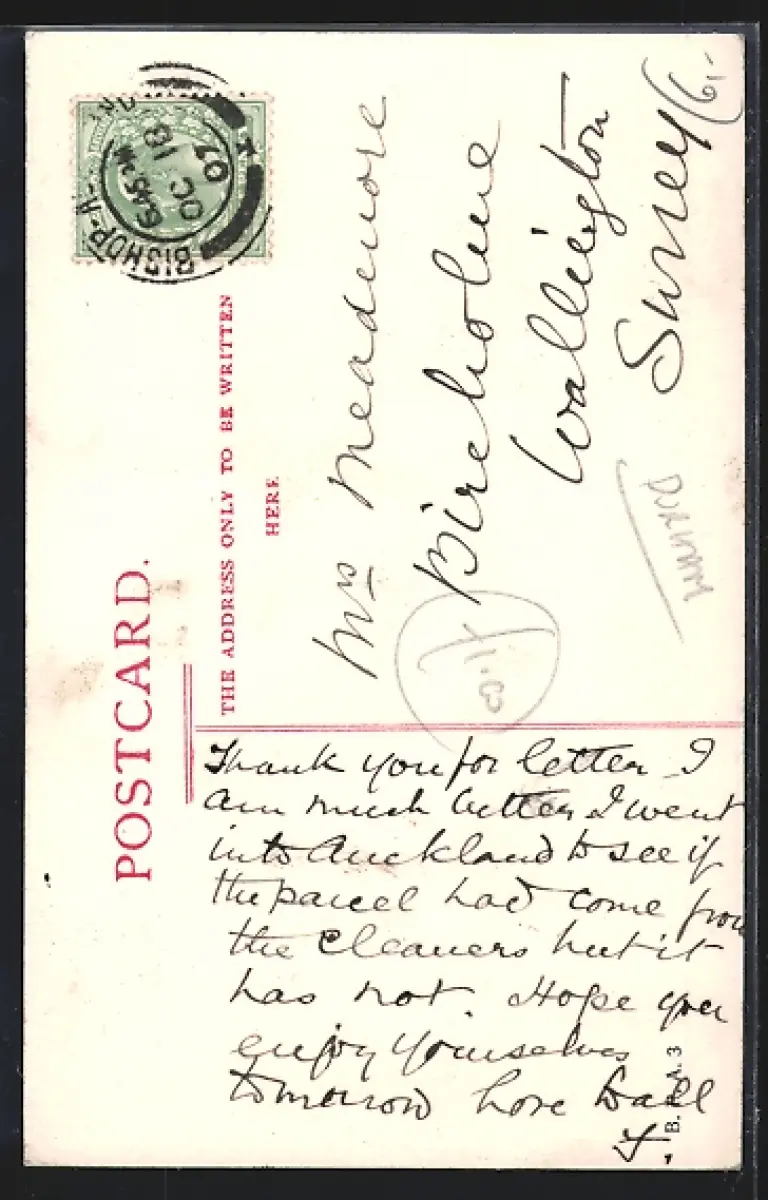 POSTCARD.
THE ADDRESS ONLY TO BE WRITTEN
HERE
BISHOP-A-
6 45 PM
OC 18
07
Mrs Meadmore
Bircholme
Wallington
Surrey
6/-
Thank you for letter I
am much better I went
into Auckland to see if
the parcel had come from
the cleaners but it
has not. Hope you
enjoy yourselves
tomorrow love to all